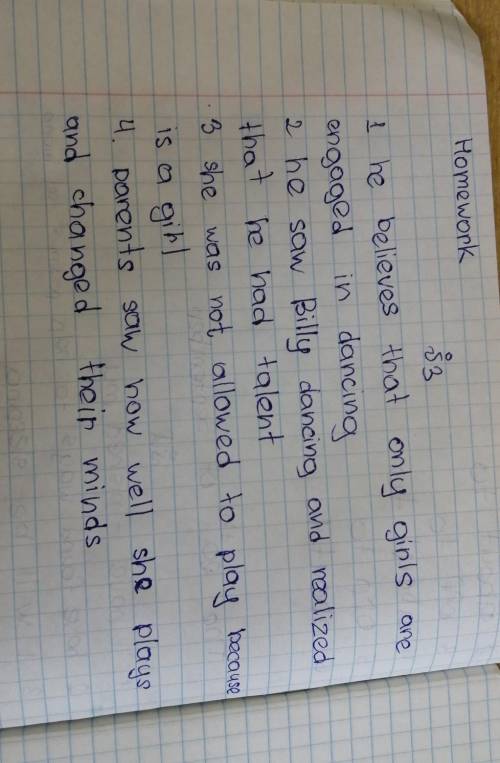 Homework
§3
1 he believes that only girls are
engaged in dancing
2 he saw Billy dancing and realized
that he had talent
3 she was not allowed to play because
is a girl
4. parents saw how well she plays
and changed their minds